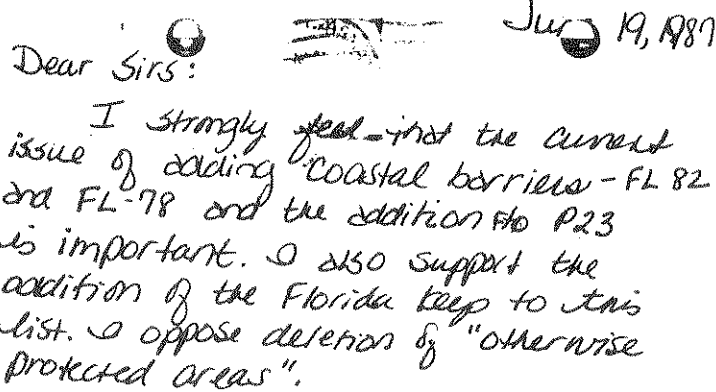 Jun 19, 1987
Dear Sirs:
I strongly feel that the current
issue of adding coastal barriers - FL 82
and FL-78 and the addition to P23
is important. I also support the
addition of the Florida Keys to this
list. I oppose deletion of "otherwise
protected areas".